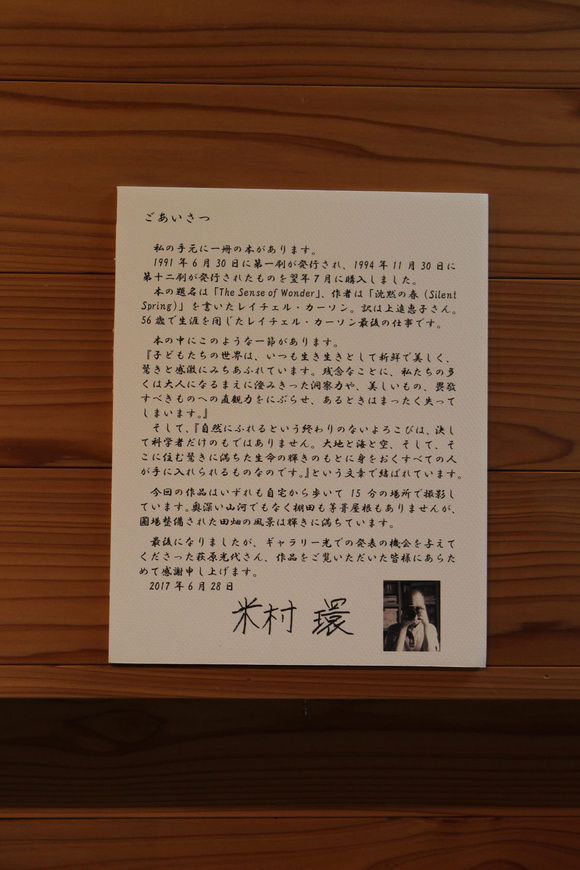 ごあいさつ
私の手元に一冊の本があります。
1991年6月30日に第一刷が発行され、1994年11月30日に
第十二刷が発行されたものを翌年7月に購入しました。
本の題名は「The Sense of Wonder」、作者は「沈黙の春（Silent
Spring）」を書いたレイチェル・カーソン。訳は上遠恵子さん。
56歳で生涯を閉じたレイチェル・カーソン最後の仕事です。
本の中にこのような一節があります。
『子どもたちの世界は、いつも生き生きとして新鮮で美しく、
驚きと感激にみちあふれています。残念なことに、私たちの多
くは大人になるまえに澄みきった洞察力や、美しいもの、畏敬
すべきものへの直観力をにぶらせ、あるときはまったく失って
しまいます。』
そして、『自然にふれるという終わりのないよろこびは、決し
て科学者だけのものではありません。大地と海と空、そして、そ
こに住む驚きに満ちた生命の輝きのもとに身をおくすべての人
が手に入れられるものなのです。』という文章で結ばれています。
今回の作品はいずれも自宅から歩いて15分の場所で撮影し
ています。奥深い山河でもなく棚田も茅葺屋根もありませんが、
圃場整備された田畑の風景は輝きに満ちています。
最後になりましたが、ギャラリー光での発表の機会を与えて
くださった萩原光代さん、作品をご覧いただいた皆様にあらた
めて感謝申し上げます。
2017年6月28日
米村 環